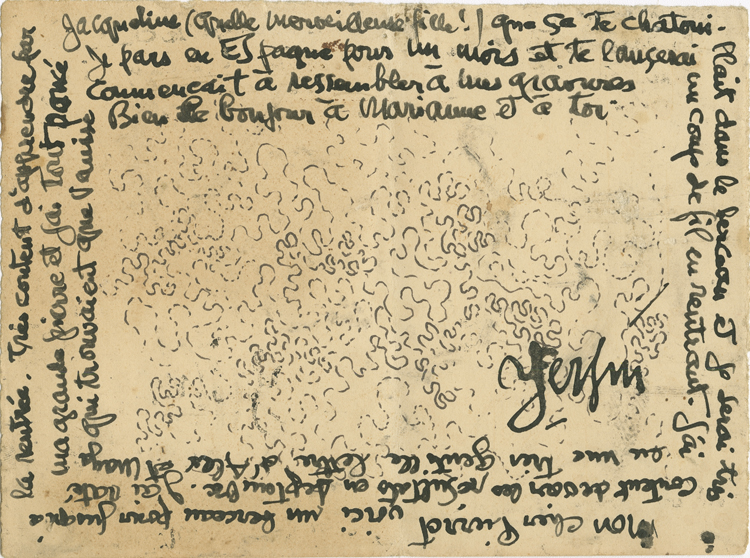 Mon cher Pierrot voici un berceau pour jusqu'à
la rentrée. Très content d'apprendre par
Jacqueline (quelle merveilleuse fille!) que ça te chatoui-
llait dans le berceau et je serai très
content de voir les résultats en septembre. J'ai raté
ma grande pierre et j'ai tout poncé
Je pars en Espagne pour un mois et te lancerai
un coup de fil en rentrant. J'ai
eu une très gentille lettre d'Alex et Maya
qui trouvaient que
commençait à ressembler à mes gravures
Bien le bonjour à Marianne et à toi
Yersin